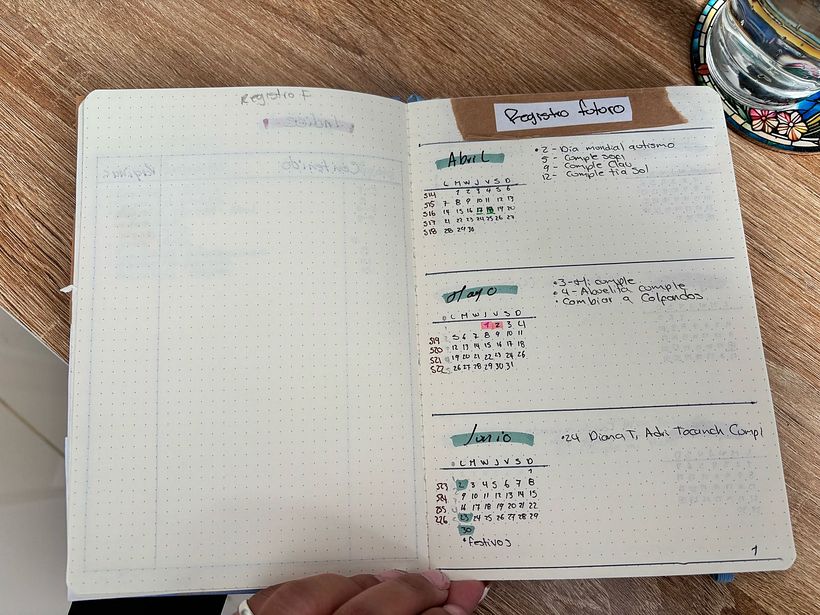 Registro F
Indice
Contenido
Registro futuro
Abril
L M W J V S D
S14 1 2 3 4 5 6
S15 7 8 9 10 11 12 13
S16 14 15 16 17 18 19 20
S17 21 22 23 24 25 26 27
S18 28 29 30
• 2 - Dia mondial autismo
5 - Comple Sopi
9 - Comple Clau
12 - Comple tia Sol
Mayo
L M W J V S D
1 2 3 4
S19 5 6 7 8 9 10 11
S20 12 13 14 15 16 17 18
S21 19 20 21 22 23 24 25
S22 26 27 28 29 30 31
• 3 - Mi comple
• 4 - Abuelita comple
• Cambiar a Colfondos
Junio
L M W J V S D
1
S23 2 3 4 5 6 7 8
S24 9 10 11 12 13 14 15
16 17 18 19 20 21 22
23 24 25 26 27 28 29
30
• festivos
• 24 Diana T, Adri Compl
1